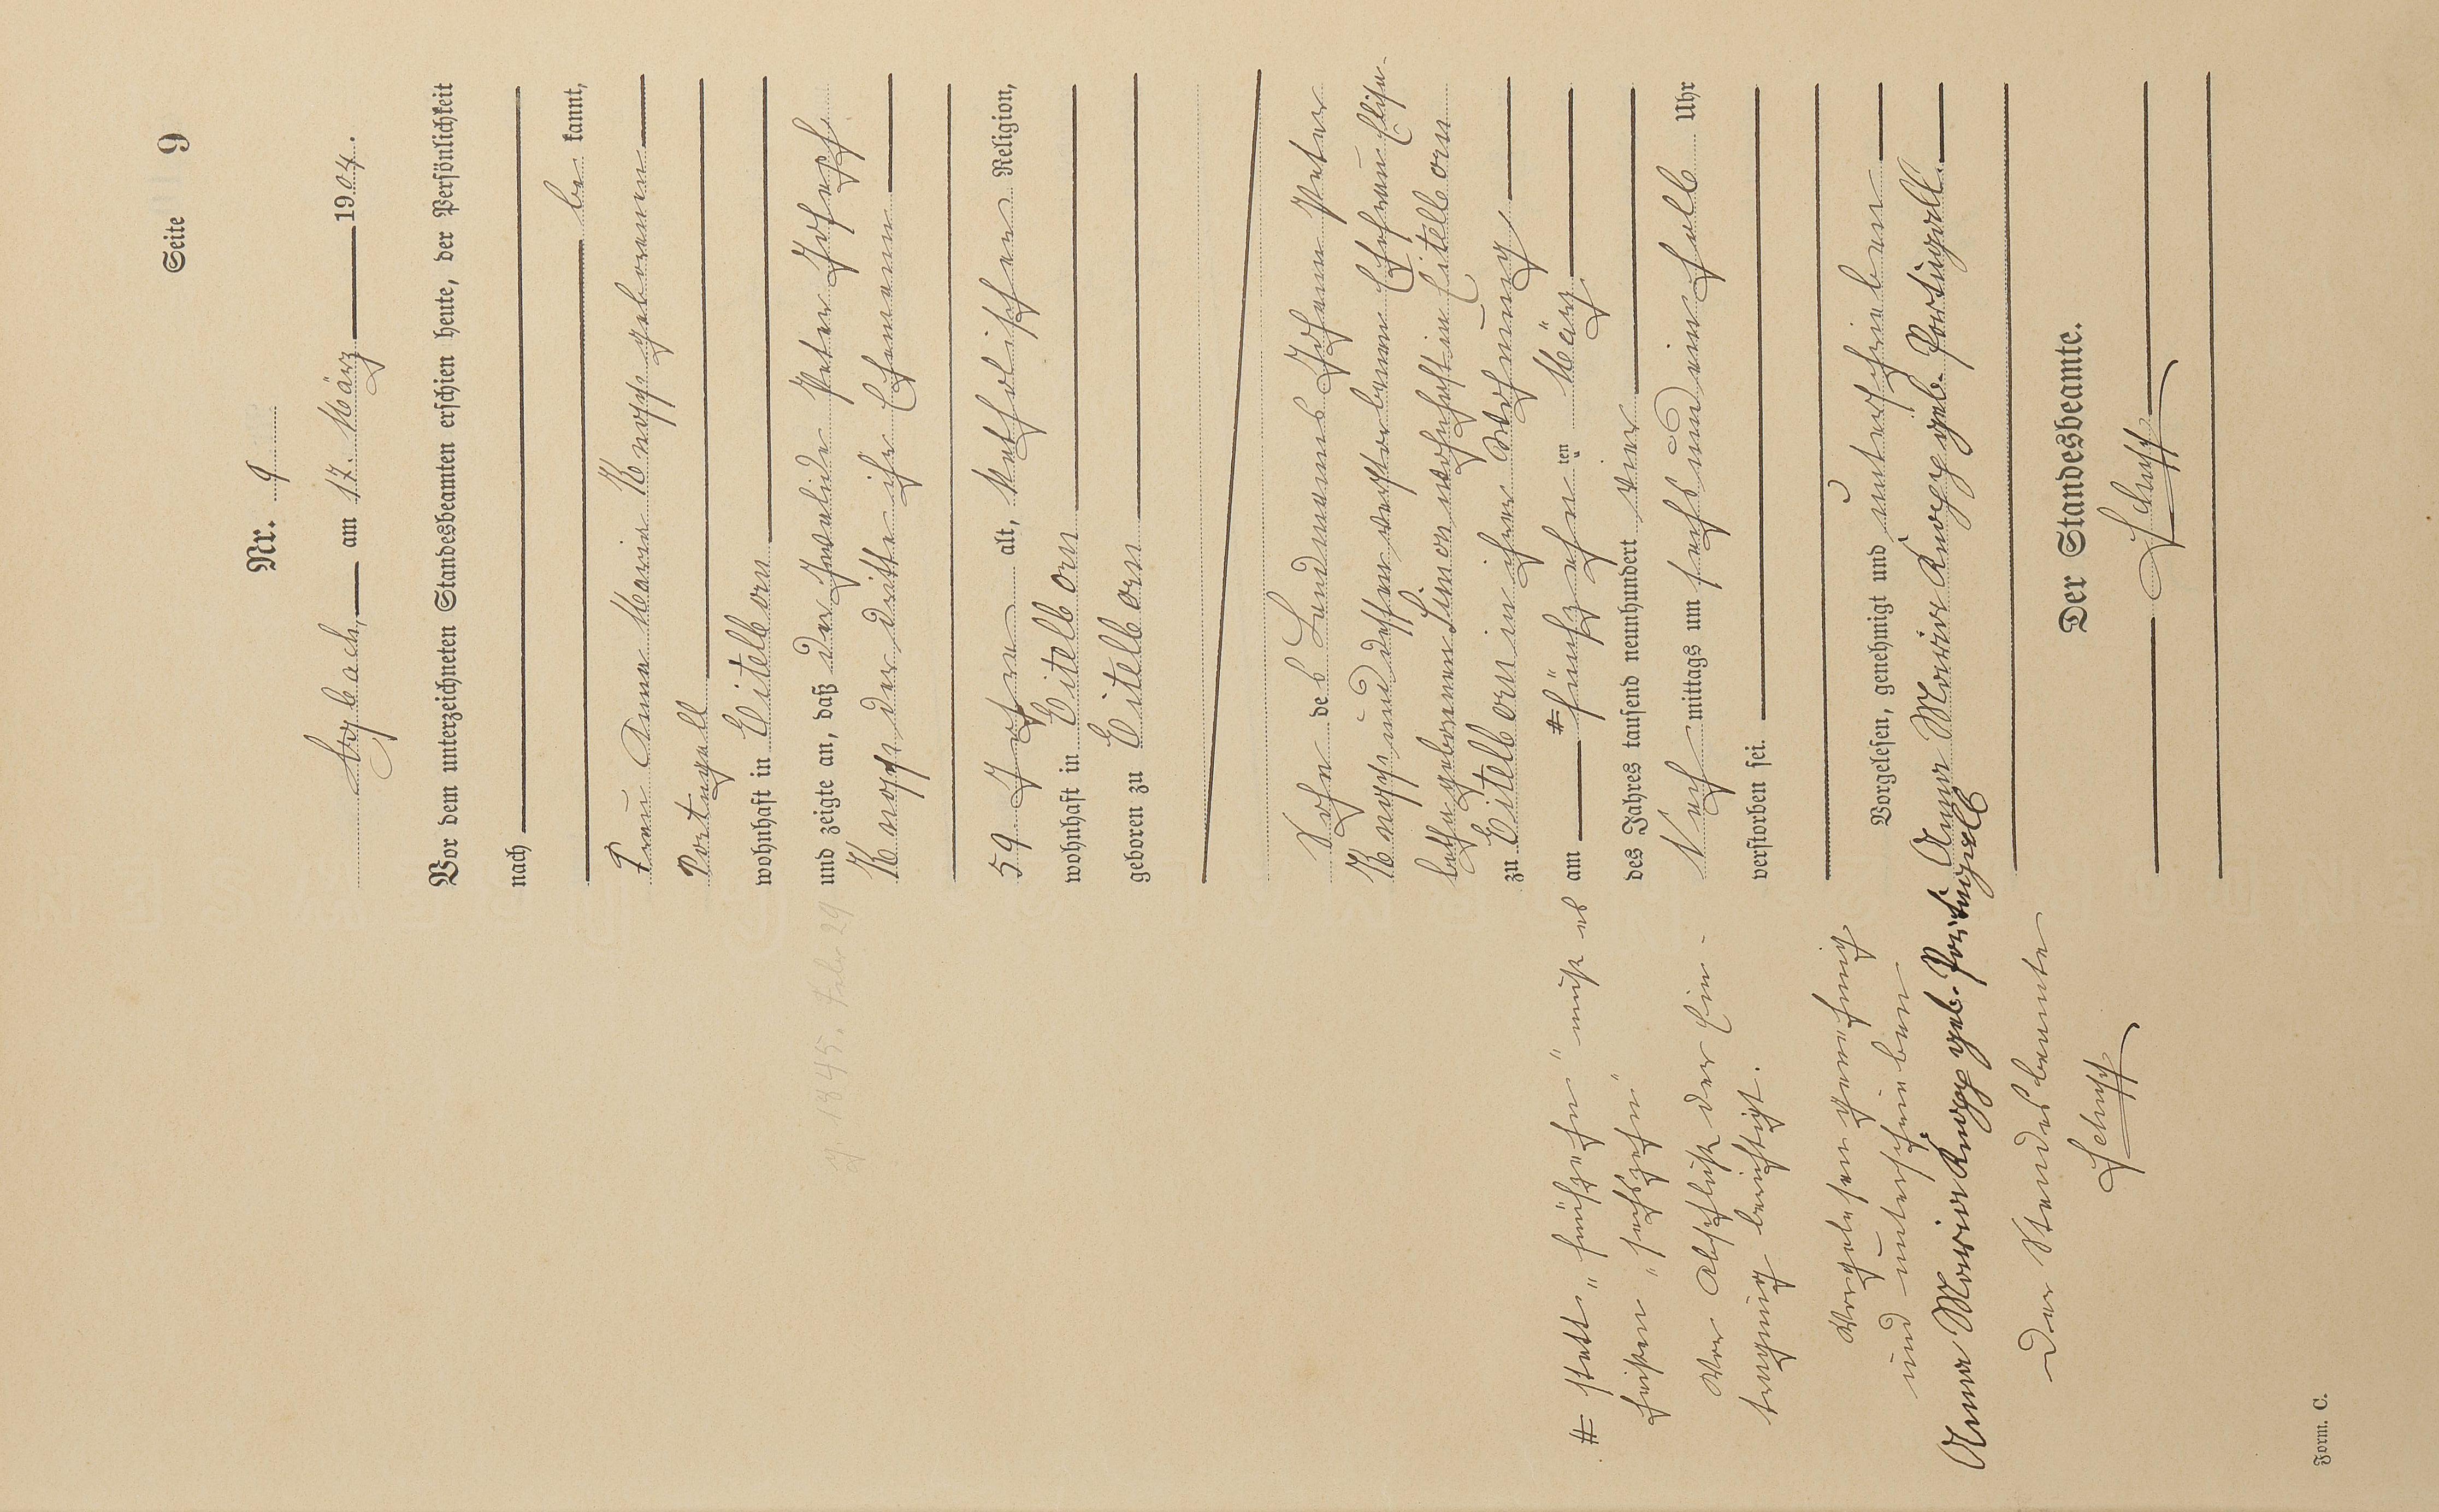 Seite 9
Nr. 9
Arzbach, am 17. März 1904.
Vor dem unterzeichneten Standesbeamten erschien heute, der Persönlichkeit
nach
be kannt,
Frau Anna Maria Knopp geborenen
Portugall
wohnhaft in Eitelborn
und zeigte an, daß der Invalide Peter Josef
Knopp der dritte ihr Ehemann
59 Jahre alt, katholischer Religion,
wohnhaft in Eitelborn
geboren zu Eitelborn
Sohn des Landmanns Johann Peter
Knopp und dessen verstorbenen Ehefrau Elisa-
betha geborenen Simon wohnhaft in Eitelborn
zu Eitelborn in ihrer Wohnung
am # fünfzehn ten März
des Jahres tausend neunhundert vier
Nach mittags um sechs und ein halb Uhr
verstorben sei.
Vorgelesen, genehmigt und unterschrieben
Anna Maria Knopp geb. Portugall.
Der Standesbeamte.
Schupp
g. 1845. Febr 29
# statt "fünfzehn" muß es
heißen "sechszehn"
Vor Abschluß der Ein-
tragung berichtigt.
Vorgelesen genehmigt
und unterschrieben
Anna Maria Knopp geb. Portugall
Der Standesbeamte
Schupp
Form. C.